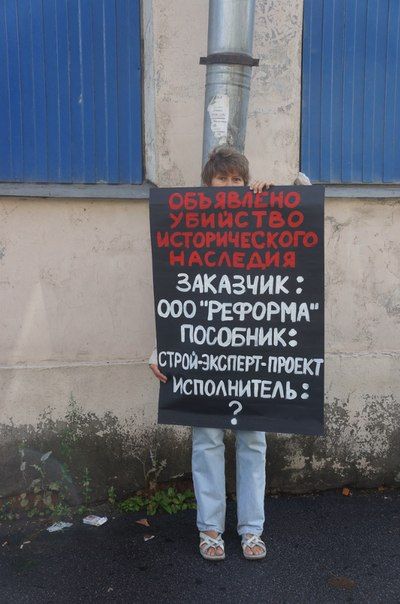 ОБЪЯВЛЕНО
УБИЙСТВО
ИСТОРИЧЕСКОГО
НАСЛЕДИЯ
ЗАКАЗЧИК:
ООО "РЕФОРМА"
ПОСОБНИК:
СТРОЙ-ЭКСПЕРТ-ПРОЕКТ
ИСПОЛНИТЕЛЬ:
?